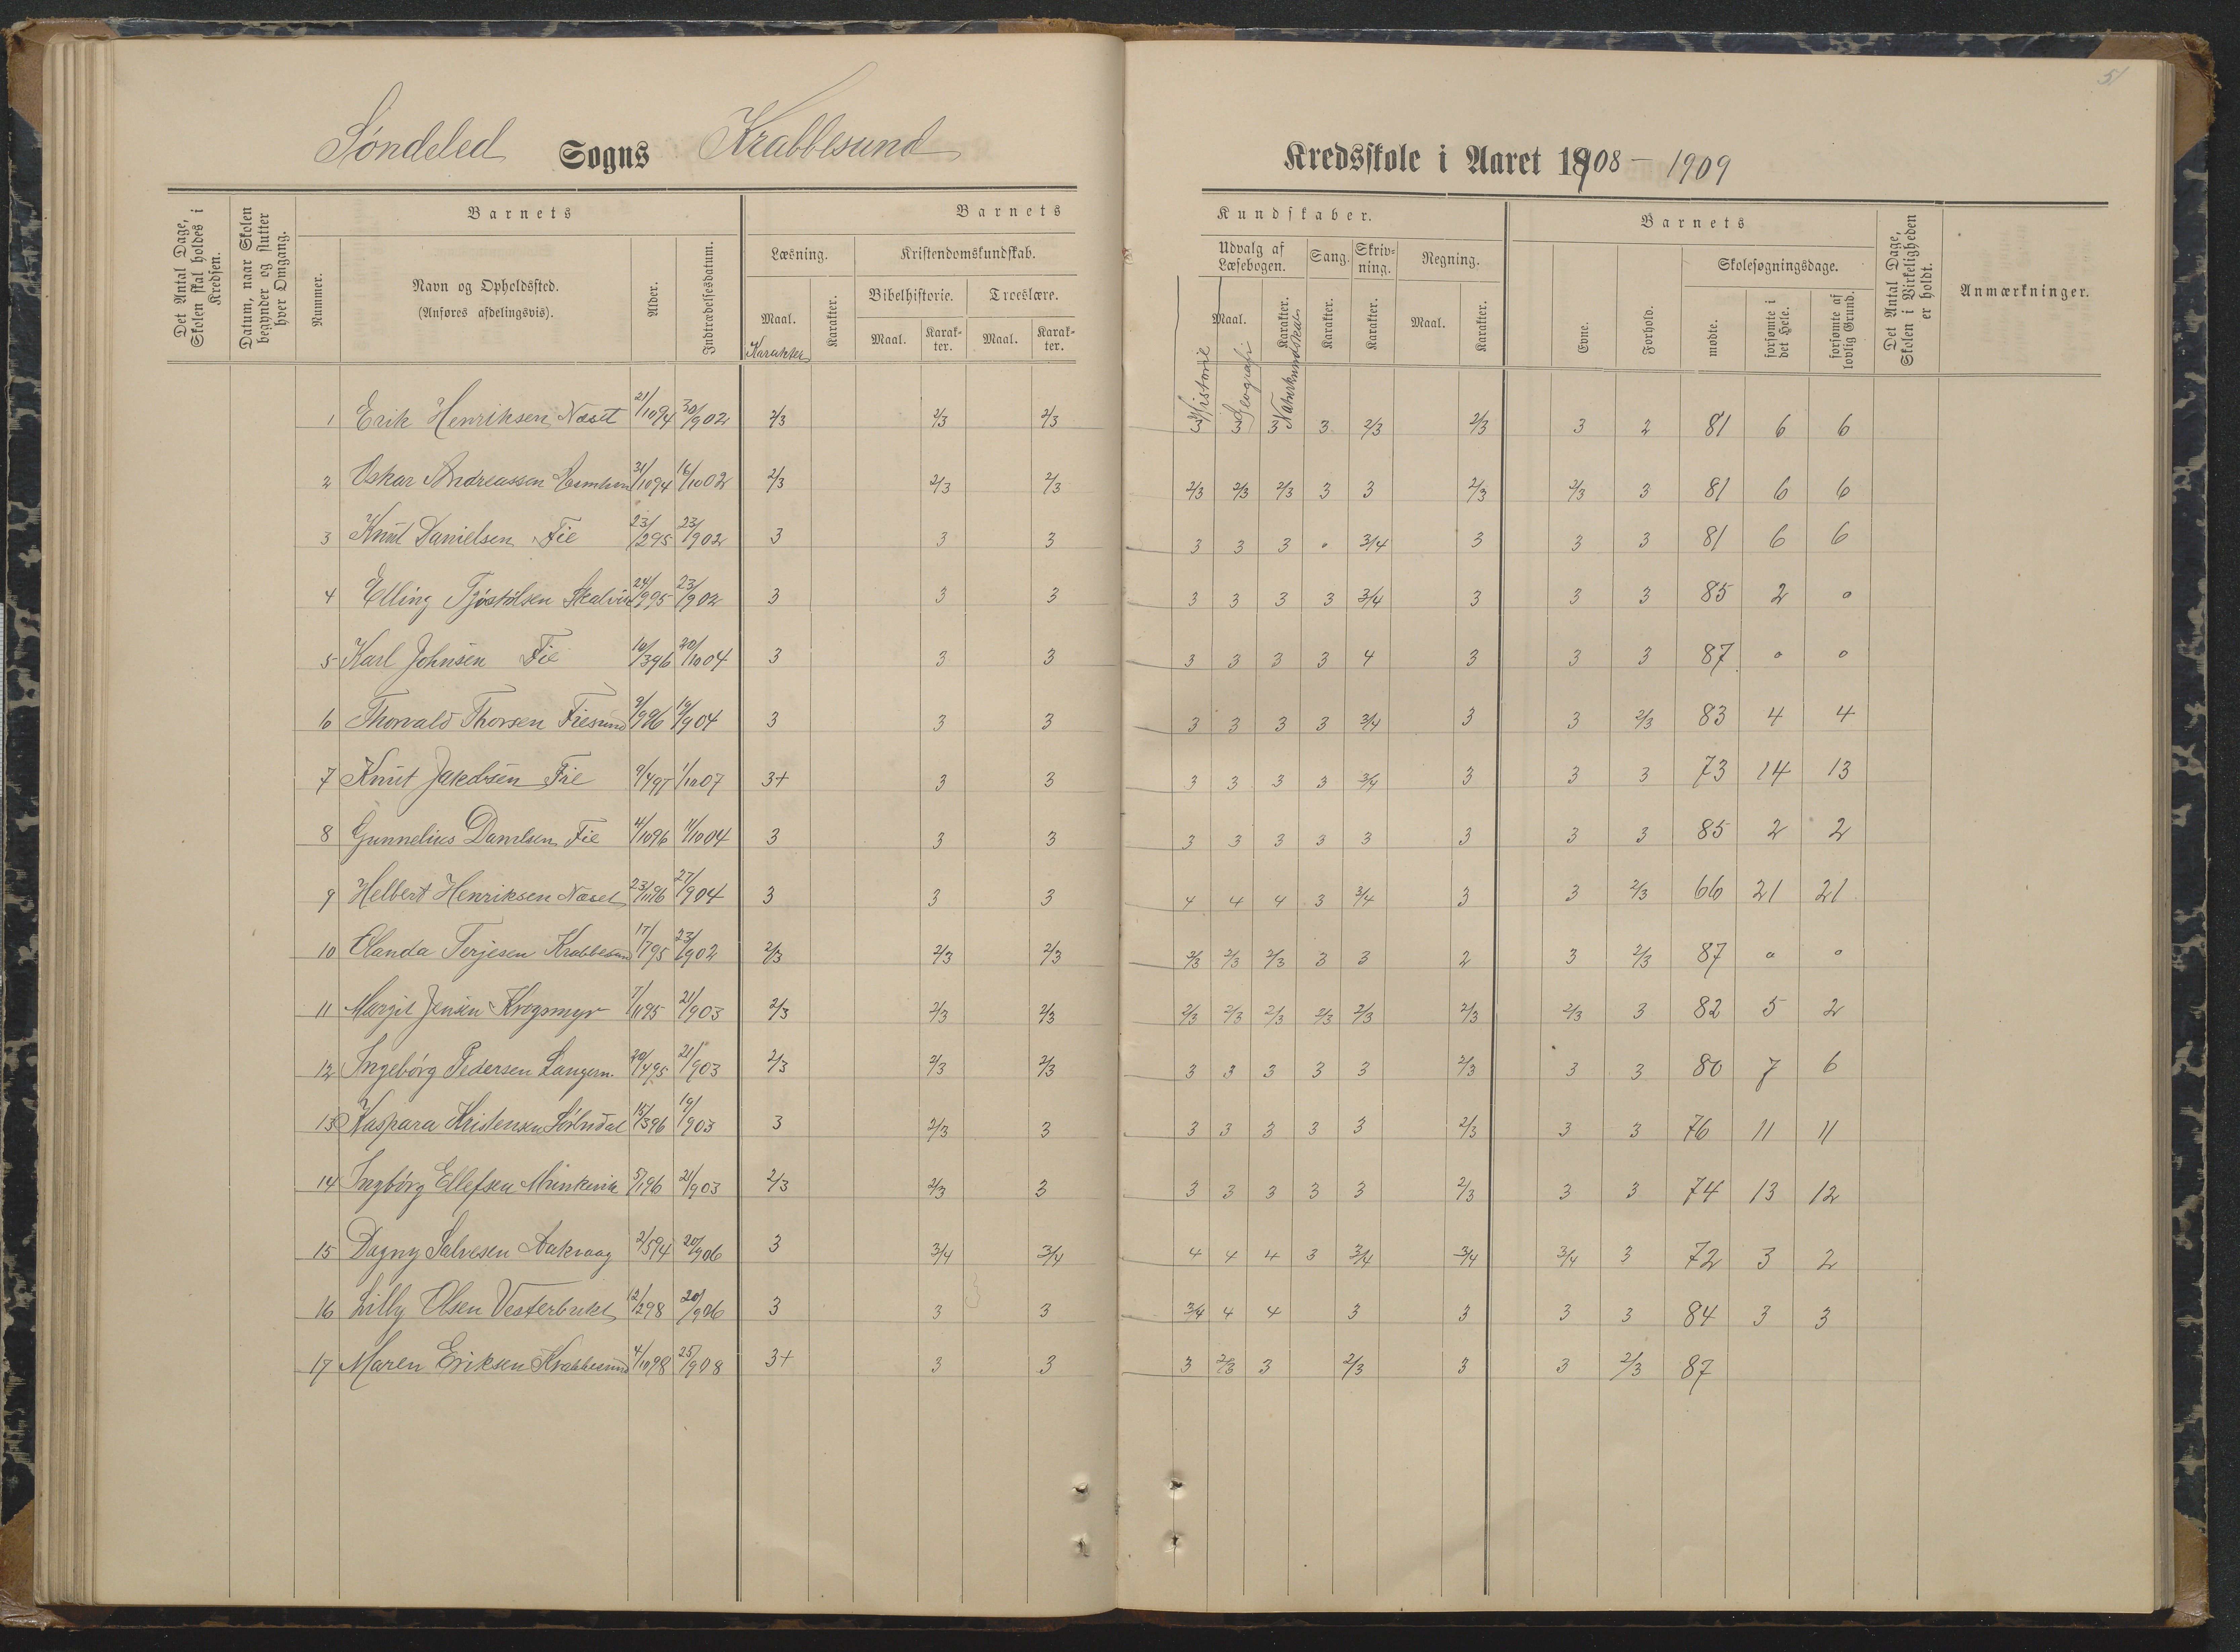 51
Søndeled Sogns Krabbesund Kredsskole i Aaret 1908 – 1909
Det Antal Dage, Skolen skal holdes i Kredsen.
Datum, naar Skolen begynder og slutter hver Omgang.
Nummer.
Barnets
Navn og Opholdssted.
(Anføres afdelingsvis).
Alder.
Indtrædelsesdatum.
Barnets Kundskaber.
Læsning.
Maal. Karakter
Karakter.
Kristendomskundskab.
Bibelhistorie.
Maal.
Karakter.
Troeslære.
Maal.
Karakter.
Udvalg af Læsebogen.
Maal.
Karakter.
Historie
Geografi
Naturkundskab
Sang.
Karakter.
Skrivning.
Karakter.
Regning.
Maal.
Karakter.
Barnets
Evne.
Forhold.
Skolesøgningsdage.
mødte.
forsømte i det Hele.
forsømte af lovlig Grund.
Det Antal Dage, Skolen i Virkeligheden er holdt.
Anmærkninger.
1 Erik Henriksen Næset 21/10 94 30/9 02 2/3 2/3 2/3 3 3 3 3 2/3 2/3 3 2 81 6 6
2 Oskar Andreassen 31/10 94 16/10 02 2/3 2/3 2/3 2/3 2/3 2/3 3 3 2/3 2/3 3 81 6 6
3 Knut Danielsen Fie 23/2 95 23/9 02 3 3 3 3 3 3 0 3/4 3 3 3 81 6 6
4 Elling Tjøstølsen 24/9 95 23/9 02 3 3 3 3 3 3 3 3/4 3 3 3 85 2 0
5 Karl Johnsen Fie 10/3 96 20/10 04 3 3 3 3 3 3 3 4 3 3 3 87 0 0
6 Thorvald Thorsen Fiesund 3/9 96 19/9 04 3 3 3 3 3 3 3 3/4 3 3 2/3 83 4 4
7 Knut Jakobsen Fie 9/4 97 1/10 07 3+ 3 3 3 3 3 3 3/4 3 3 3 73 14 13
8 Gunnelius Danielsen Fie 4/10 96 11/10 04 3 3 3 3 3 3 3 3 3 3 3 85 2 2
9 Helbert Henriksen Næset 23/11 96 27/9 04 3 3 3 4 4 4 3 3/4 3 3 2/3 66 21 21
10 Olanda Terjesen Krabbesund 17/7 95 23/9 02 2/3 2/3 2/3 2/3 2/3 2/3 3 3 2 3 2/3 87 0 0
11 Margit Jensen Krogsmyr 7/11 95 21/9 03 2/3 2/3 2/3 2/3 2/3 2/3 2/3 2/3 2/3 2/3 3 82 5 2
12 Ingebórg Pedersen Langern. 20/4 95 21/9 03 2/3 2/3 2/3 3 3 3 3 3 2/3 3 3 80 7 6
13 Kaspara Kristensen 15/3 96 19/9 03 3 2/3 3 3 3 3 3 3 2/3 3 3 76 11 11
14 Ingbórg Ellefsen 5/1 96 21/9 03 2/3 2/3 3 3 3 3 3 3 2/3 3 3 74 13 12
15 Dagny Salvesen Aakvaag 2/5 94 20/9 06 3 3/4 3/4 4 4 4 3 3/4 3/4 3/4 3 72 3 2
16 Lilly Olsen Vesterbukt 12/2 98 20/9 06 3 3 3 3/4 4 4 3 3 3 3 84 3 3
17 Maren Eriksen Krabbesund 4/10 98 25/9 08 3+ 3 3 3 2/3 3 2/3 3 3 2/3 87